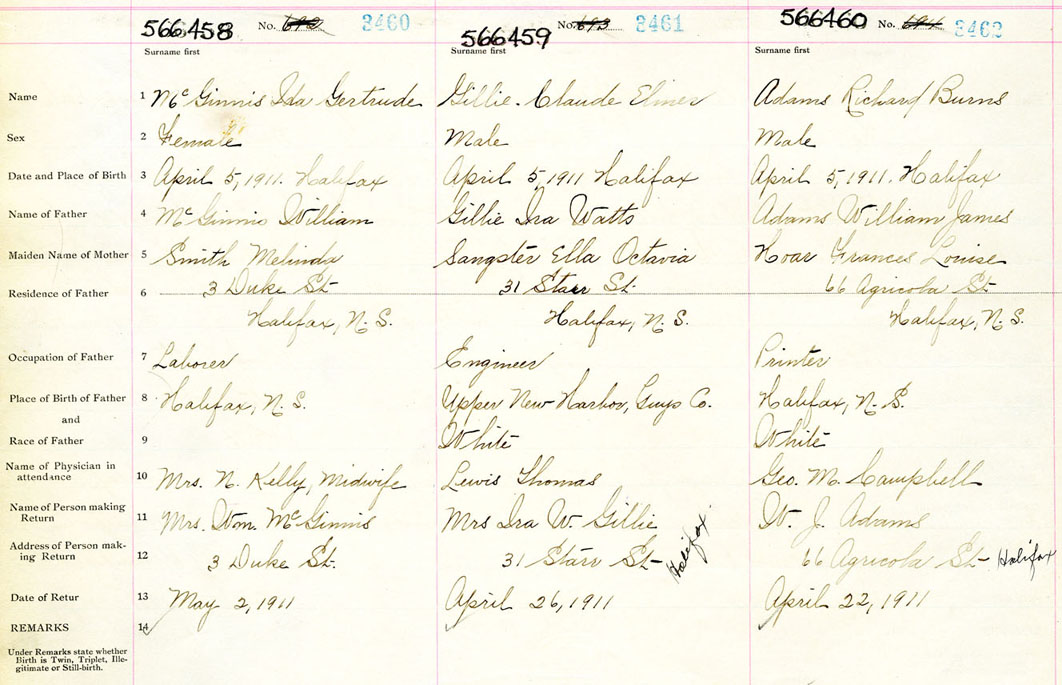 566458 No. 692 3460 566459 No. 693 3461 566460 No. 694 3462
Surname first Surname first Surname first
Name 1 McGinnis Ida Gertrude Gillie. Claude Elmer Adams Richard Burns
Sex 2 Female Male Male
Date and Place of Birth 3 April 5, 1911. Halifax April 5 1911 Halifax April 5, 1911. Halifax
Name of Father 4 McGinnis William Gillie Ira Watts Adams William James
Maiden Name of Mother 5 Smith Melinda Sangster Ella Octavia Hoar Frances Louise
Residence of Father 6 3 Duke St- 31 Starr St- 66 Agricola St-
Halifax, N.S. Halifax, N.S. Halifax, N.S.
Occupation of Father 7 Laborer Engineer Printer
Place of Birth of Father 8 Halifax, N.S. Upper New Harbor, Guys Co. Halifax, N.S.
and
Race of Father 9 White White
Name of Physician in
attendance 10 Mrs. N. Kelly, Midwife Lewis Thomas Geo. M. Campbell
Name of Person making
Return 11 Mrs. Wm. McGinnis Mrs Ira W. Gillie W. J. Adams
Address of Person mak-
ing Return 12 3 Duke St. 31 Starr St- Halifax. 66 Agricola St- Halifax
Date of Retur 13 May 2, 1911 April 26, 1911 April 22, 1911
REMARKS 14
Under Remarks state whether
Birth is Twin, Triplet, Ille-
gitimate or Still-birth.